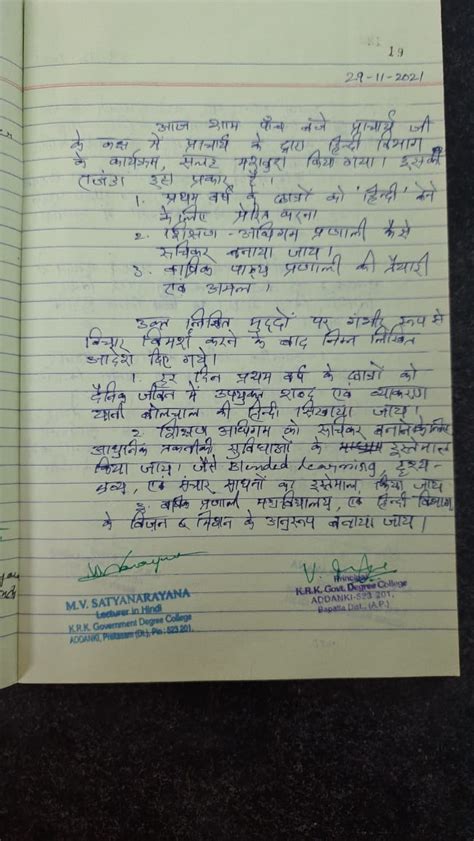 19
29-11-2021
आज शाम पाँच बजे प्राचार्य जी
के कक्ष में प्राचार्य के द्वारा हिन्दी विभाग
के कार्यक्रम, सलह मशवुरा किया गया। इसकी
एजंडा इस प्रकार है।
1. प्रथम वर्ष के छात्रों को 'हिन्दी' लेने
के लिए प्रेरित करना
2. शिक्षण - अधिगम प्रणाली कैसे
रुचिकर बनाया जाय।
3. वार्षिक पाठ्य प्रणाली की तैयारी
एवं अमल।
उक्त लिखित मुद्दों पर गंभीर रूप से
विचार विमर्श करने के बाद निम्न लिखित
आदेश दिए गये।
1. हर दिन प्रथम वर्ष के छात्रों को
दैनिक जीवन में उपयुक्त शब्द एवं व्याकरण
यानी बोलचाल की हिन्दी सिखाया जाय।
2. शिक्षण अधिगम को रुचिकर बनाने के लिए
आधुनिक तकनीकी सुविधाओं के इस्तेमाल
किया जाय। जैसे Blended Learning, दृश्य-
श्रव्य, एवं संचार साधनों का इस्तेमाल किया जाय
3. वार्षिक प्रणाली महाविद्यालय, एवं हिन्दी विभाग
के विज़न & मिशन के अनुरूप बनाया जाय।
M.V. SATYANARAYANA
Lecturer in Hindi
K.R.K. Government Degree College
ADDANKI, Prakasam (Dt.), Pin : 523 201.
Principal
K.R.K. Govt. Degree College
ADDANKI-523 201.
Bapatla Dist., (A.P.)